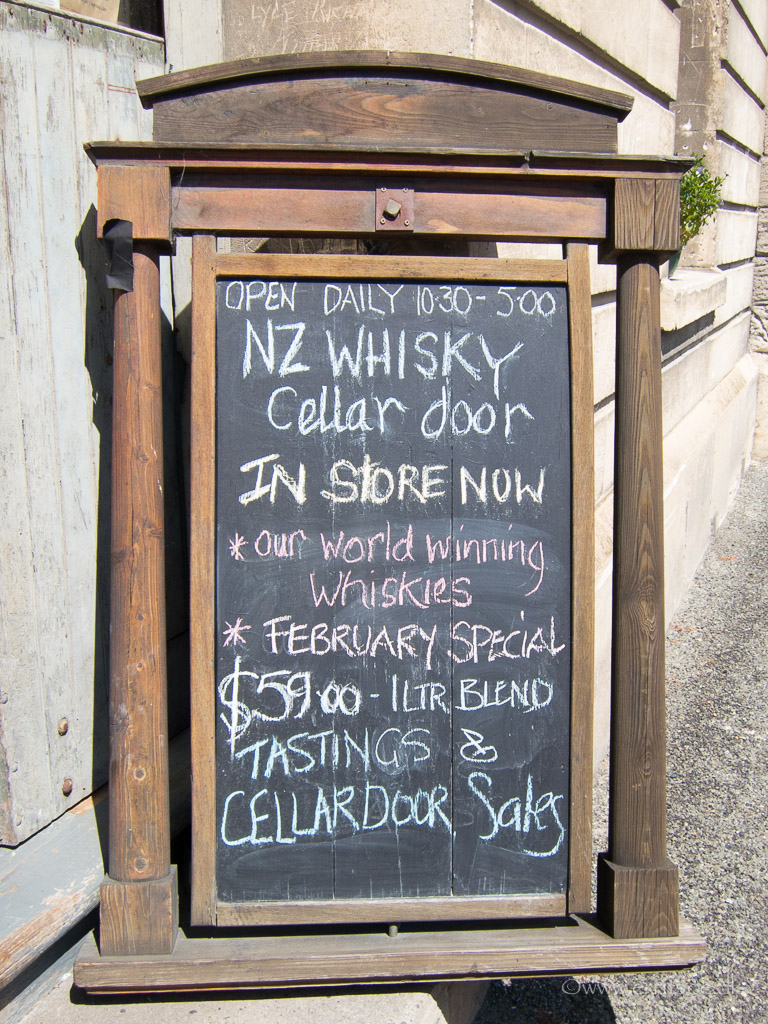 OPEN DAILY 10:30 - 5:00
NZ WHISKY
Cellar door
IN STORE NOW
* our world winning
Whiskies
* FEBRUARY SPECIAL
$59.00 - 1 LTR BLEND
TASTINGS &
CELLAR DOOR Sales